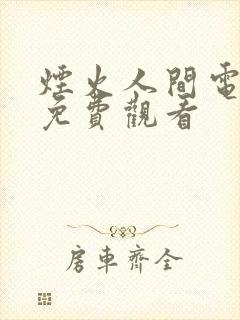 煙火人間電
免費觀看
房車齊全